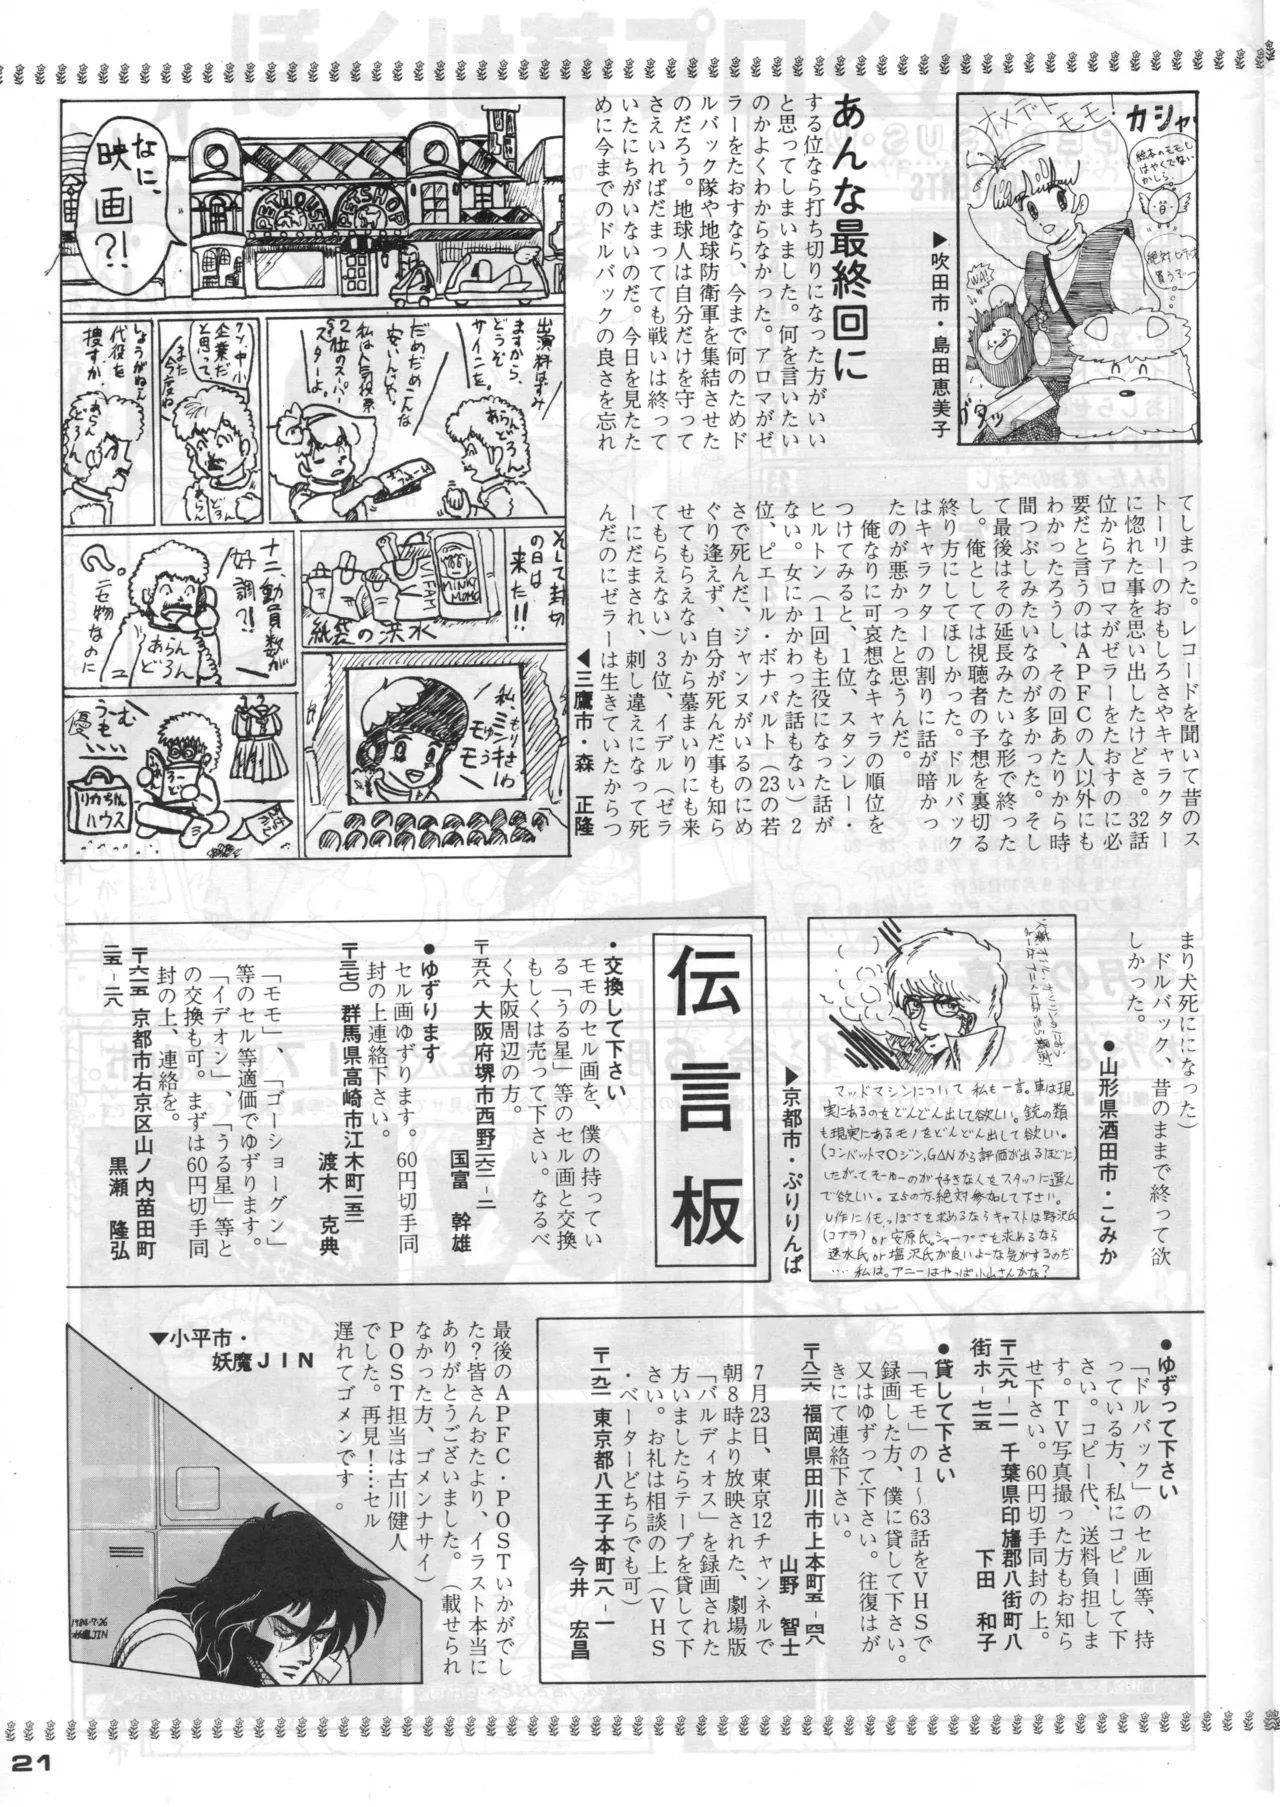 オメデトモモ!
カシャ
絵本のモモもはやくでないかしら。
絶対ビデオ買うぞー
WA!
▶吹田市・島田恵美子
あんな最終回に
する位なら打ち切りになった方がいい
と思ってしまいました。何を言いたい
のかよくわからなかった。アロマがゼ
ラーをたおすなら、今まで何のためド
ルバック隊や地球防衛軍を集結させた
のだろう。地球人は自分だけを守って
さえいればだまってても戦いは終って
いたにちがいないのだ。今日を見たた
めに今までのドルバックの良さを忘れ
てしまった。レコードを聞いて昔のス
トーリーのおもしろさやキャラクター
に惚れた事を思い出したけどさ。32話
位からアロマがゼラーをたおすのに必
要だと言うのはAPFCの人以外にも
わかったろうし、その回あたりから時
間つぶしみたいなのが多かった。そし
て最後はその延長みたいな形で終った
し。俺としては視聴者の予想を裏切る
終り方にしてほしかった。ドルバック
はキャラクターの割りに話が暗かっ
たのが悪かったと思うんだ。
俺なりに可哀想なキャラの順位を
つけてみると、1位、スタンレー・
ヒルトン(1回も主役になった話が
ない。女にかかわった話もない)2
位、ピエール・ボナパルト(23の若
さで死んだ、ジャンヌがいるのにめ
ぐり逢えず、自分が死んだ事も知ら
せてもらえないから墓まいりにも来
てもらえない)3位、イデル(ゼラ
ーにだまされ、刺し違えになって死
んだのにゼラーは生きていたからつ
まり犬死にになった)
ドルバック、昔のままで終って欲
しかった。
●山形県酒田市・こみか
なに、映画?!
PETHOUSE
PETSHOP
出演料はずみますから、どうぞサインを。
だめだめこんな安いんじゃ。
私は人気投票2位のスーパースターよ。
ケッ、中小企業だと思って、
また今度ね
しょうがねェ代役を捜すか。
あらんどろん
そして封切の日は来た!!
紙袋の洪水
MINKY MOMO
十二、動員数が好調?!
?。二石物なのに
私、もりさわミンキーモモ
うーむもいい
優
リカちゃんハウス
◀三鷹市・森 正隆
マッドマシンについて私も一言。車は現
実にあるのをどんどん出して欲しい。銃の類
も現実にあるモノをどんどん出して欲しい。
(コンバットマ○ジン,GUNから評価が出るほどに)
したがってそーゆーのが好きな人をスタッフに選ん
で欲しい。Z5の方、絶対参加して下さい。
U作にイモっぽさを求めるならキャストは野沢氏
(コブラ)or安原氏。シャープさを求めるなら
速水氏or塩沢氏が良いよーな気がするのだ
……私は。アニーはやっぱ小山さんかな?
▶京都市・ぷりりんぱ
伝言板
・交換して下さい
モモのセル画を、僕の持ってい
る「うる星」等のセル画と交換
もしくは売って下さい。なるべ
く大阪周辺の方。
〒五八八 大阪府堺市西野二六二-二
国富 幹雄
●ゆずります
セル画ゆずります。60円切手同
封の上連絡下さい。
〒三七〇 群馬県高崎市江木町二五三
渡木 克典
「モモ」、「ゴーショーグン」
等のセル等適価でゆずります。
「イデオン」、「うる星」等と
の交換も可。まずは60円切手同
封の上、連絡を。
〒六一五 京都市右京区山ノ内苗田町
二五-二八
黒瀬 隆弘
●ゆずって下さい
「ドルバック」のセル画等、持
っている方、私にコピーして下
さい。コピー代、送料負担しま
す。TV写真撮った方もお知ら
せ下さい。60円切手同封の上。
〒二八九-一一 千葉県印旛郡八街町八
街ホ-七一五
下田 和子
●貸して下さい
「モモ」の1〜63話をVHSで
録画した方、僕に貸して下さい。
又はゆずって下さい。往復はが
きにて連絡下さい。
〒八二六 福岡県田川市上本町五-四八
山野 智士
7月23日、東京12チャンネルで
朝8時より放映された、劇場版
「バルディオス」を録画された
方いましたらテープを貸して下
さい。お礼は相談の上(VHS
・ベータどちらでも可)
〒一九二 東京都八王子本町一八-一
今井 宏昌
最後のAPFC・POSTいかがでし
た?皆さんおたより、イラスト本当に
ありがとうございました。(載せられ
なかった方、ゴメンナサイ)
POST担当は古川健人
でした。再見!……セル
遅れてゴメンです。
▼小平市・
妖魔JIN
1984-7-26
妖魔JIN
21